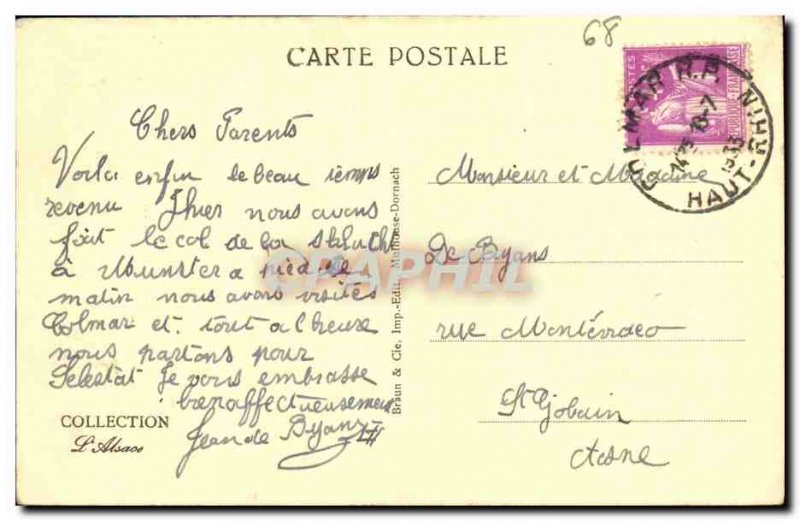 68
CARTE POSTALE
POSTES
REPUBLIQUE FRANÇAISE
COLMAR R.P.
1425 18-7
1933
HAUT-RHIN
Chers Parents
Voila enfin le beau temps
revenu Jhier nous avons
fait le col de la Schlucht
à Munster a pied ce
matin nous avons visités
Colmar et tout a l'heure
nous partons pour
Selestat Je vous embrasse
bien affectueusement
Jean de Byans
COLLECTION
L'Alsace
Braun & Cie, Imp.-Edit., Mulhouse-Dornach
Monsieur et Madame
De Byans
rue
St Gobain
Aisne
CPARPHIL